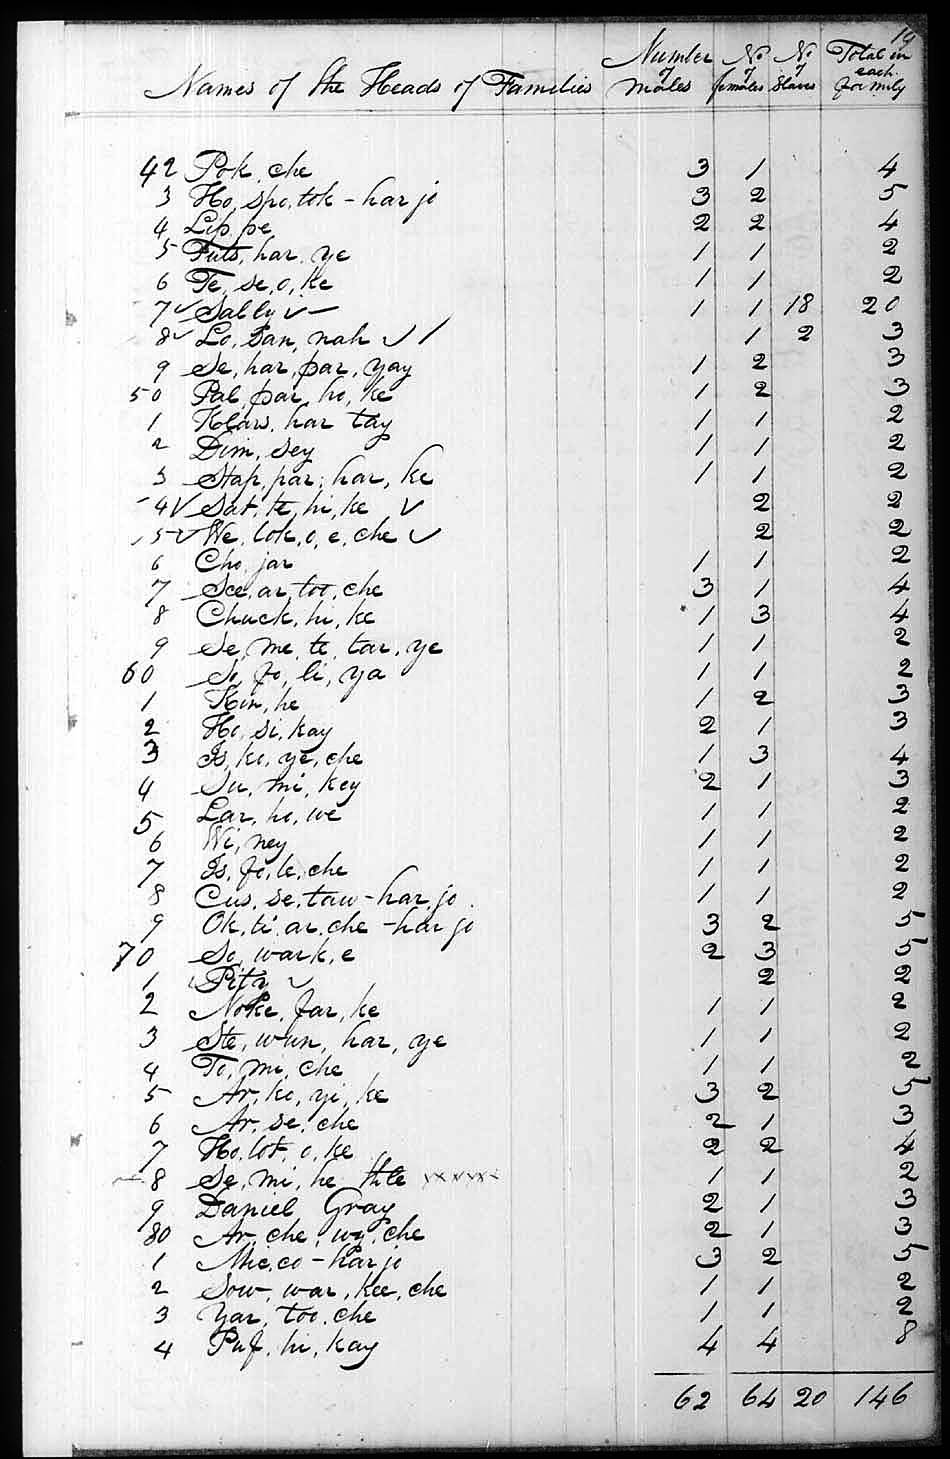 19
Number No No Total in
Names of the Heads of Families of males of females of Slaves each family
42 Pok, che 3 1 4
3 Ho, spo, tok - har jo 3 2 5
4 Lip, pe 2 2 4
5 Futs, har, ye 1 1 2
6 Te, se, o, ke 1 1 2
7 ✓ Sally ✓ - 1 1 18 20
8 ✓ Lo, san, nah ✓ / 1 2 3
9 Se, har, par, yay 1 2 3
50 Pal, par, ho, ke 1 2 3
1 Klaw, har tay 1 1 2
2 Dim, sey 1 1 2
3 Stap, par, har, ke 1 1 2
4 ✓ Sat, te, hi, ke ✓ 2 2
5 ✓ We, lok, o, e, che ✓ 2 2
6 Cho, jar 1 1 2
7 See, ar, too, che 3 1 4
8 Chuck, hi, ke 1 3 4
9 Se, me, te, tar, ye 1 1 2
60 So, fo, li, ya 1 1 2
1 Kin, he 1 2 3
2 Ho, si, kay 2 1 3
3 Is, ko, ye, che 1 3 4
4 Su, mi, key 2 1 3
5 Lar, ho, we 1 1 2
6 Wi, ney 1 1 2
7 Is, fo, le, che 1 1 2
8 Cus, se, taw - har, jo 1 1 2
9 Ok, ti, ar, che - har jo 3 2 5
70 So, wark, e 2 3 5
1 Pita ✓ 2 2
2 Noke, far, ke 1 1 2
3 Ste, wun, har, ye 1 1 2
4 To, mi, che 1 1 2
5 Ar, ko, yi, ke 3 2 5
6 Ar, se, che 2 1 3
7 Ho, lot, o, ke 2 2 4
8 Se, mi, he thle 1 1 2
9 Daniel Gray 2 1 3
80 Ar, che, wy, che 2 1 3
1 Mic, co - har jo 3 2 5
2 Sow, war, kee, che 1 1 2
3 Yar, too, che 1 1 2
4 Puf, hi, kay 4 4 8
62 64 20 146